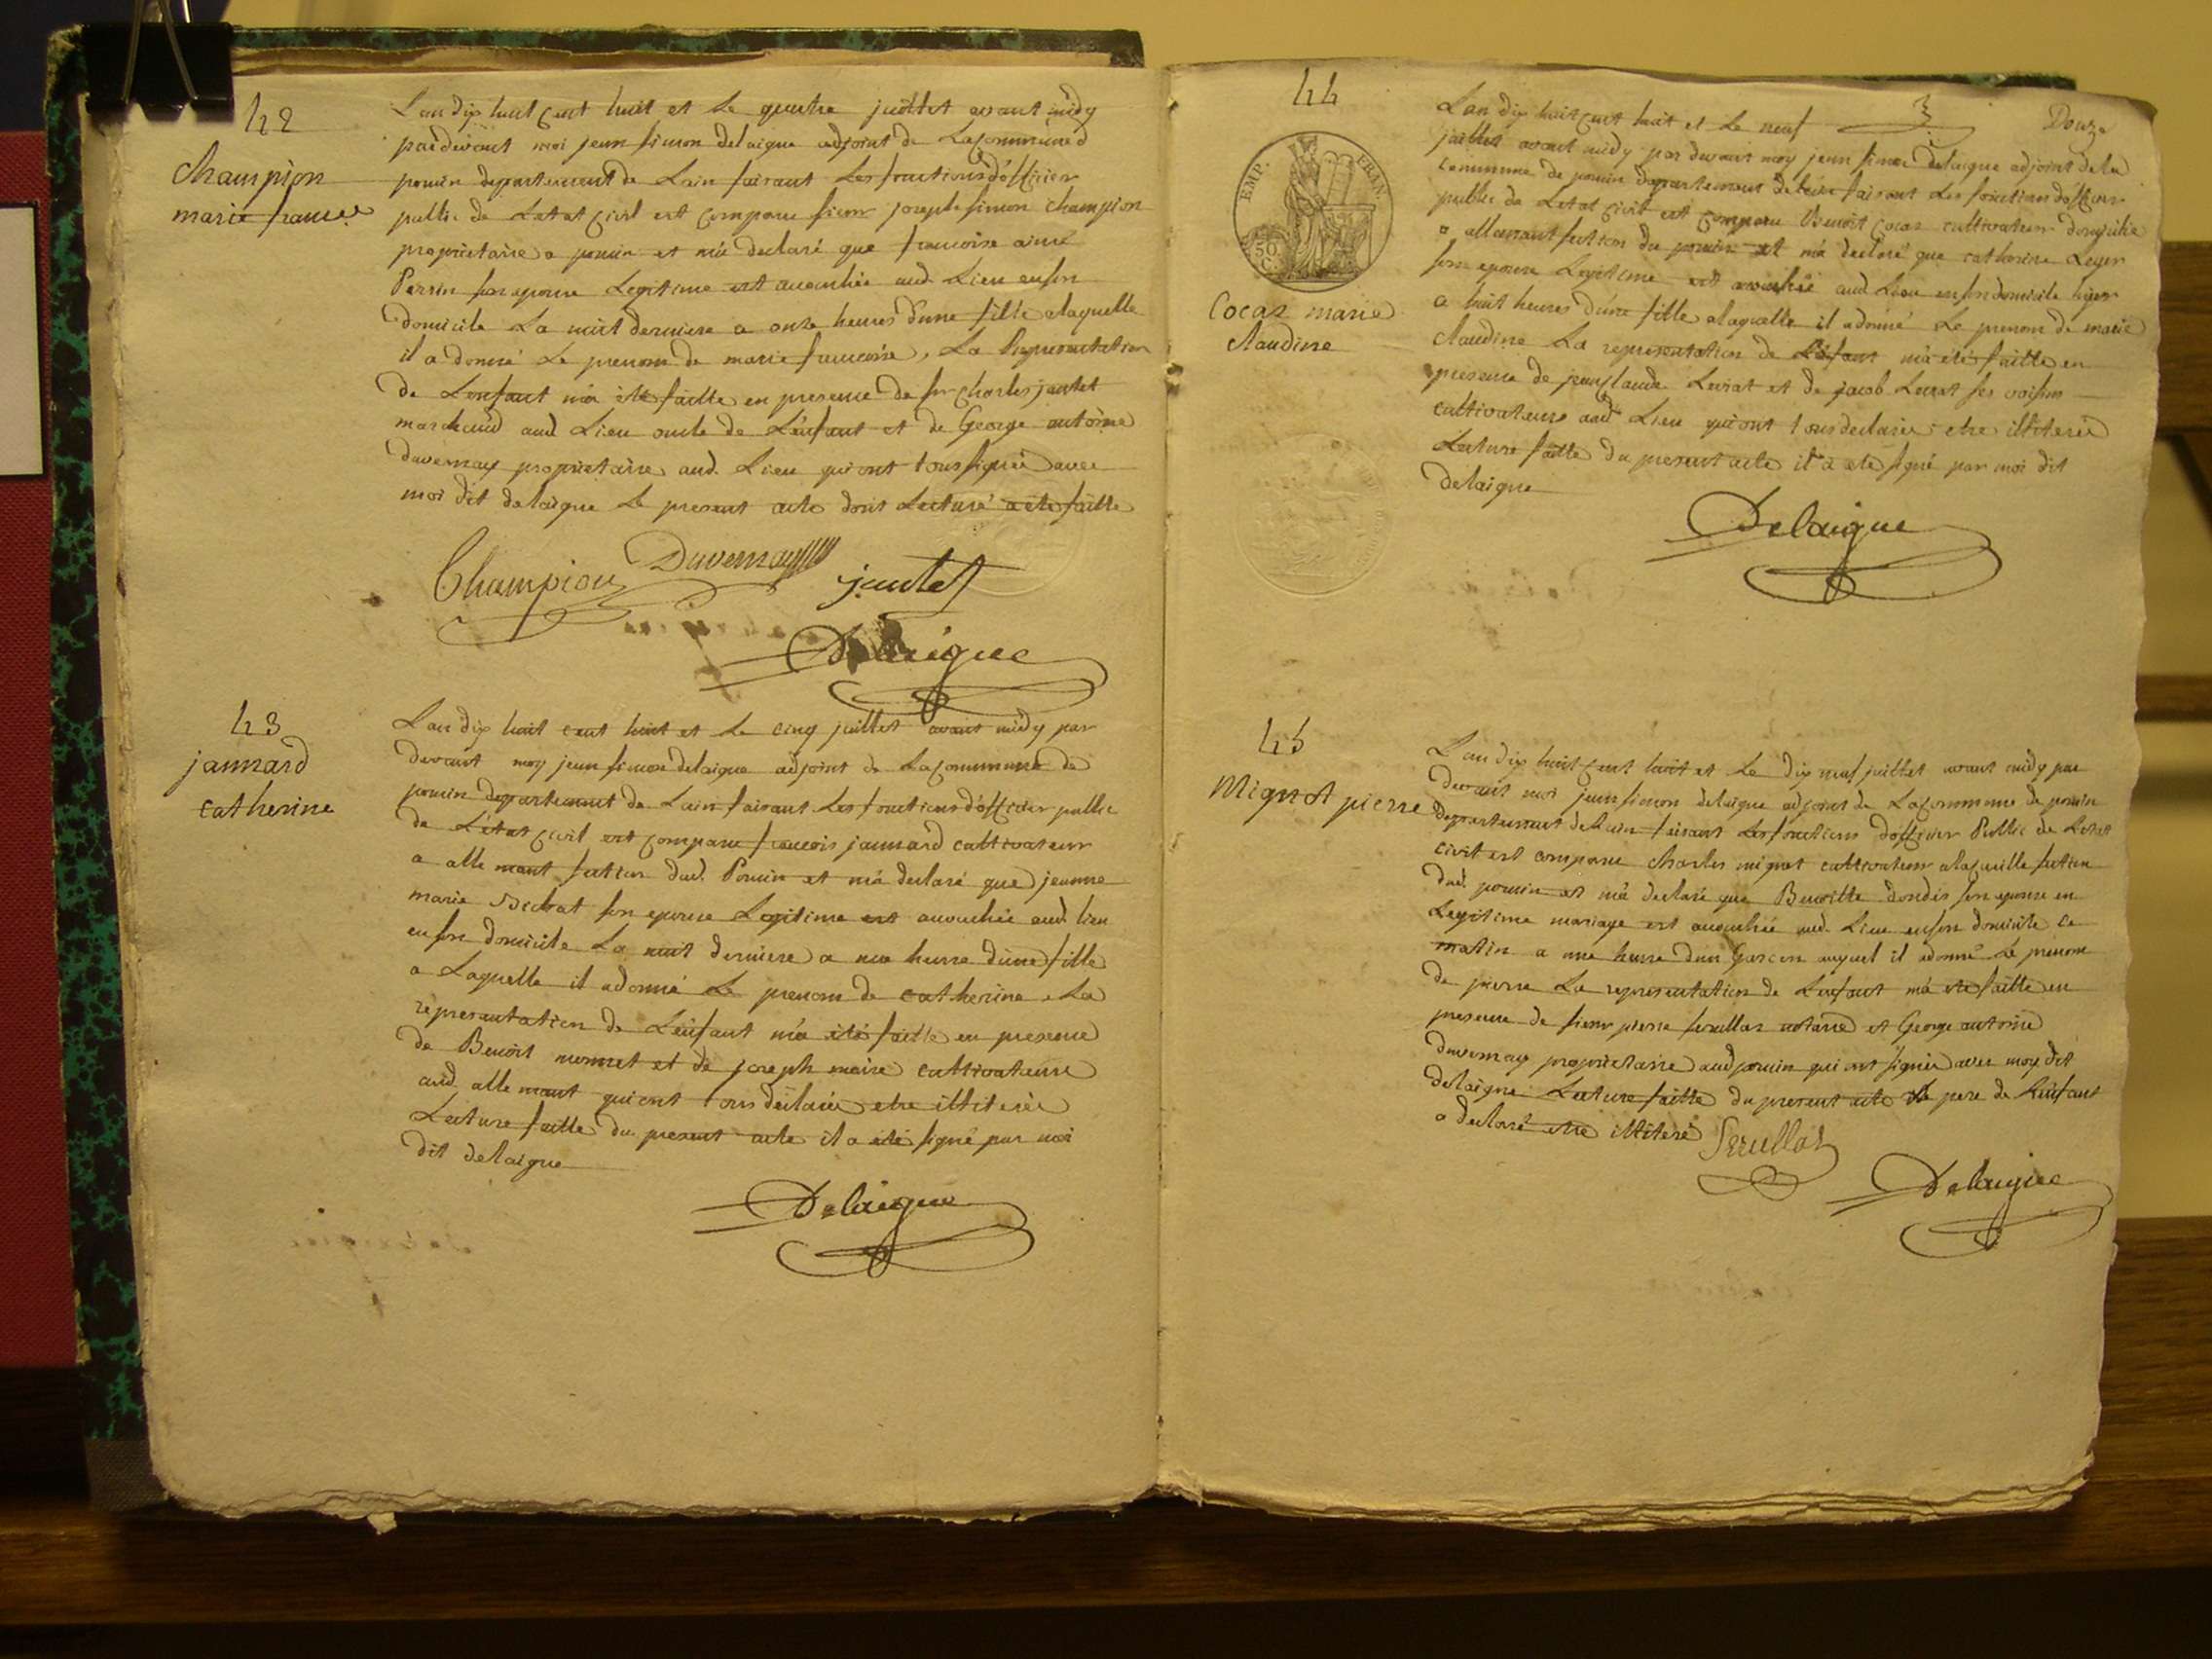 42
Champion
marie franc.se
L'an dix huit cent huit et le quatre juillet avant midy
pardevant moi jean simon delaigue adjoint de la commune d
poncin departement de Lain faisant les fonctions d'officier
public de Letat civil est comparu sieur joseph simon champion
propriétaire a poncin et m'a declaré que francoise aimé
Perrin son epouse Legitime est accouchée aud. Lieu en son
domicile La nuit derniere a onze heures d'une fille a laquelle
il a donné Le prenom de marie francoise, La Representation
de L'enfant m'a été faitte en presence de sr charles jantet
marchand aud Lieu oncle de L'enfant et de George antoine
Duvernay propriétaire aud. Lieu qui ont tous signés avec
moi dit delaigue Le present acte dont Lecture a été faitte
Champion Duvernay jantet
Delaigue
43
jannard
catherine
L'an dix huit cent huit et Le cinq juillet avant midy par
devant moy jean simon delaigue adjoint de La commune de
poncin departement de Lain faisant Les fonctions d'officier public
de L'état civil est comparu francois jannard cultivateur
a allemant section dud. Poncin et m'a declaré que jeanne
marie son epouse Legitime est accouchée aud. lieu
en son domicile La nuit derniere a une heure d'une fille
a Laquelle il a donné Le prenom de catherine. La
representation de L'enfant m'a été faitte en presence
de Benoit monnet et de joseph maire cultivateurs
aud. allemant qui ont tous déclarés etre illiterés
Lecture faitte du present acte il a été signé par moi
dit delaigue
Delaigue
44
Douze
EMP. FRAN.
50 C.
Cocaz marie
Claudine
L'an dix huit cent huit et Le neuf
juillet avant midy par devant moy jean simon delaigue adjoint de la
commune de poncin departement de Lain faisant Les fonctions d'officier
public de Letat civil est comparu Benoit Cocaz cultivateur domicilié
a allemant section du poncin et m'a declaré que catherine Leger
son epouse Legitime est accouchée aud Lieu en son domicile hier
a huit heures d'une fille a laquelle il a donné Le prenom de marie
Claudine La representation de L'éfant m'a été faitte en
presence de jean claude Levrat et de jacob Levrat ses voisins
cultivateurs aud. Lieu qui ont tous declarés etre illiterés
Lecture faitte du present acte il a été signé par moi dit
delaigue
Delaigue
45
Mignot pierre
L'an dix huit cent huit et Le dix neuf juillet avant midy par
devant moi jean simon delaigue adjoint de La commune de poncin
departement de Lain faisant Les fonctions d'officier Public de Letat
civil est comparu Charles mignot cultivateur a section
dud. poncin et m'a declaré que Benoitte dondin son epouse en
Legitime mariage est accouchée aud. Lieu en son domicile ce
matin a une heure d'un Garcon auquel il a donné Le prenom
de pierre La representation de L'enfant m'a été faitte en
presence de sieur pierre serullaz notaire et George antoine
duvernay propriétaire aud poncin qui ont signés avec moy dit
delaigue Lecture faitte du present acte Le pere de L'enfant
a declaré etre illiteré
Serullaz
Delaigue